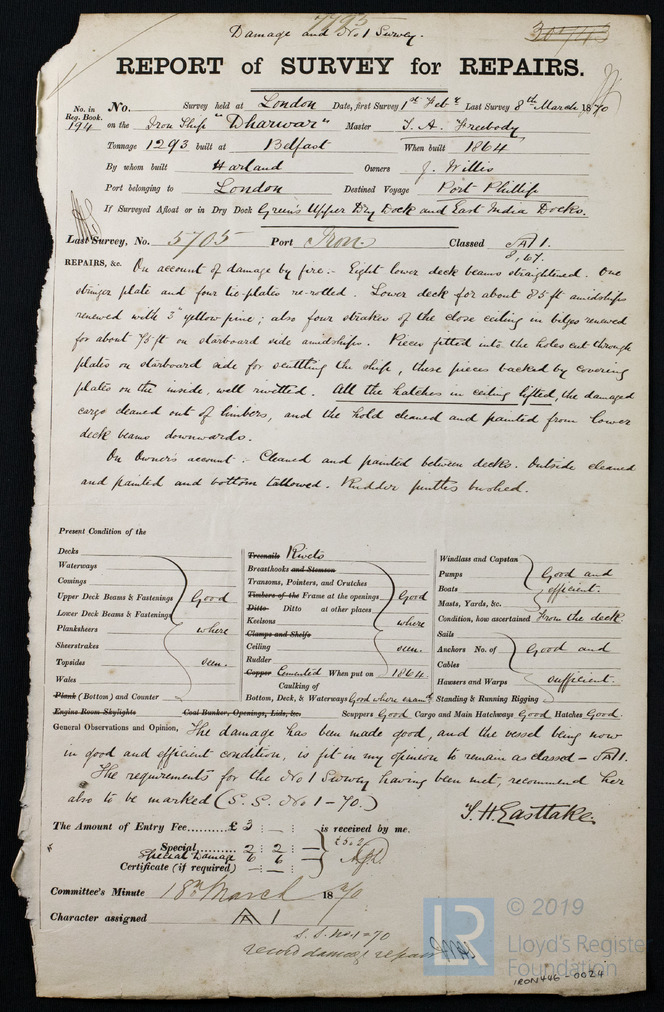 7793
Damage and No 1 Survey.
30743
REPORT of SURVEY for REPAIRS.
No. in Reg. Book. 194
No. Survey held at London Date, first Survey 1st Feb'y Last Survey 8th March 1870
on the Iron Ship "Dharwar" Master T. A. Freebody
Tonnage 1293 built at Belfast When built 1864
By whom built Harland Owners J. Willis
Port belonging to London Destined Voyage Port Phillip
If Surveyed Afloat or in Dry Dock Green's Upper Dry Dock and East India Docks.
Last Survey, No. 5705 Port Iron. Classed A 1.
8,67.
REPAIRS, &c. On account of damage by fire:- Eight lower deck beams straightened. One
stringer plate and four tie-plates re-rolled. Lower deck for about 85 ft amidships
renewed with 3" yellow pine; also four strakes of the close ceiling in bilges renewed
for about 75 ft on starboard side amidships. Pieces fitted into the holes cut through
plates on starboard side for scuttling the ship, these pieces backed by covering
plates on the inside, well rivetted. All the hatches in ceiling lifted, the damaged
cargo cleaned out of limbers, and the hold cleaned and painted from lower
deck beams downwards.
On Owner's account:- Cleaned and painted between decks. Outside cleaned
and painted and bottom tallowed. Rudder pintles bushed.
Present Condition of the
Decks
Waterways
Comings
Upper Deck Beams & Fastenings
Lower Deck Beams & Fastenings
Planksheers
Sheerstrakes
Topsides
Wales
Good where seen.
Plank (Bottom) and Counter
Treenails Rivets
Breasthooks and Stemson
Transoms, Pointers, and Crutches
Timbers of the Frame at the openings
Ditto Ditto at other places
Keelsons
Clamps and Shelfs
Ceiling
Rudder
Good where seen.
Copper Cemented When put on 1864
Caulking of
Bottom, Deck, & Waterways Good where examd
Windlass and Capstan
Pumps
Boats
Masts, Yards, &c.
Good and efficient.
Condition, how ascertained From the deck
Sails
Anchors No. of
Cables
Hawsers and Warps
Standing & Running Rigging
Good and sufficient.
Engine Room Skylights Coal Bunker, Openings, Lids, &c. Scuppers Good Cargo and Main Hatchways Good Hatches Good.
General Observations and Opinion, The damage has been made good, and the vessel being now
in good and efficient condition, is fit in my opinion to remain as classed - A 1.
The requirements for the No 1 Survey having been met, recommend her
also to be marked (S. S. No 1-70.)
T. H. Eastlake.
The Amount of Entry Fee....... £ 3 : - : is received by me.
Special....... 2 : 2 :
Special Damage 6 : 6 :
Certificate (if required)
Committee's Minute 18th March 1870
Character assigned A 1
S. S. No. 1-70
record damage repairs
© 2019
LR
Lloyd's Register
Foundation
IRON446-0024